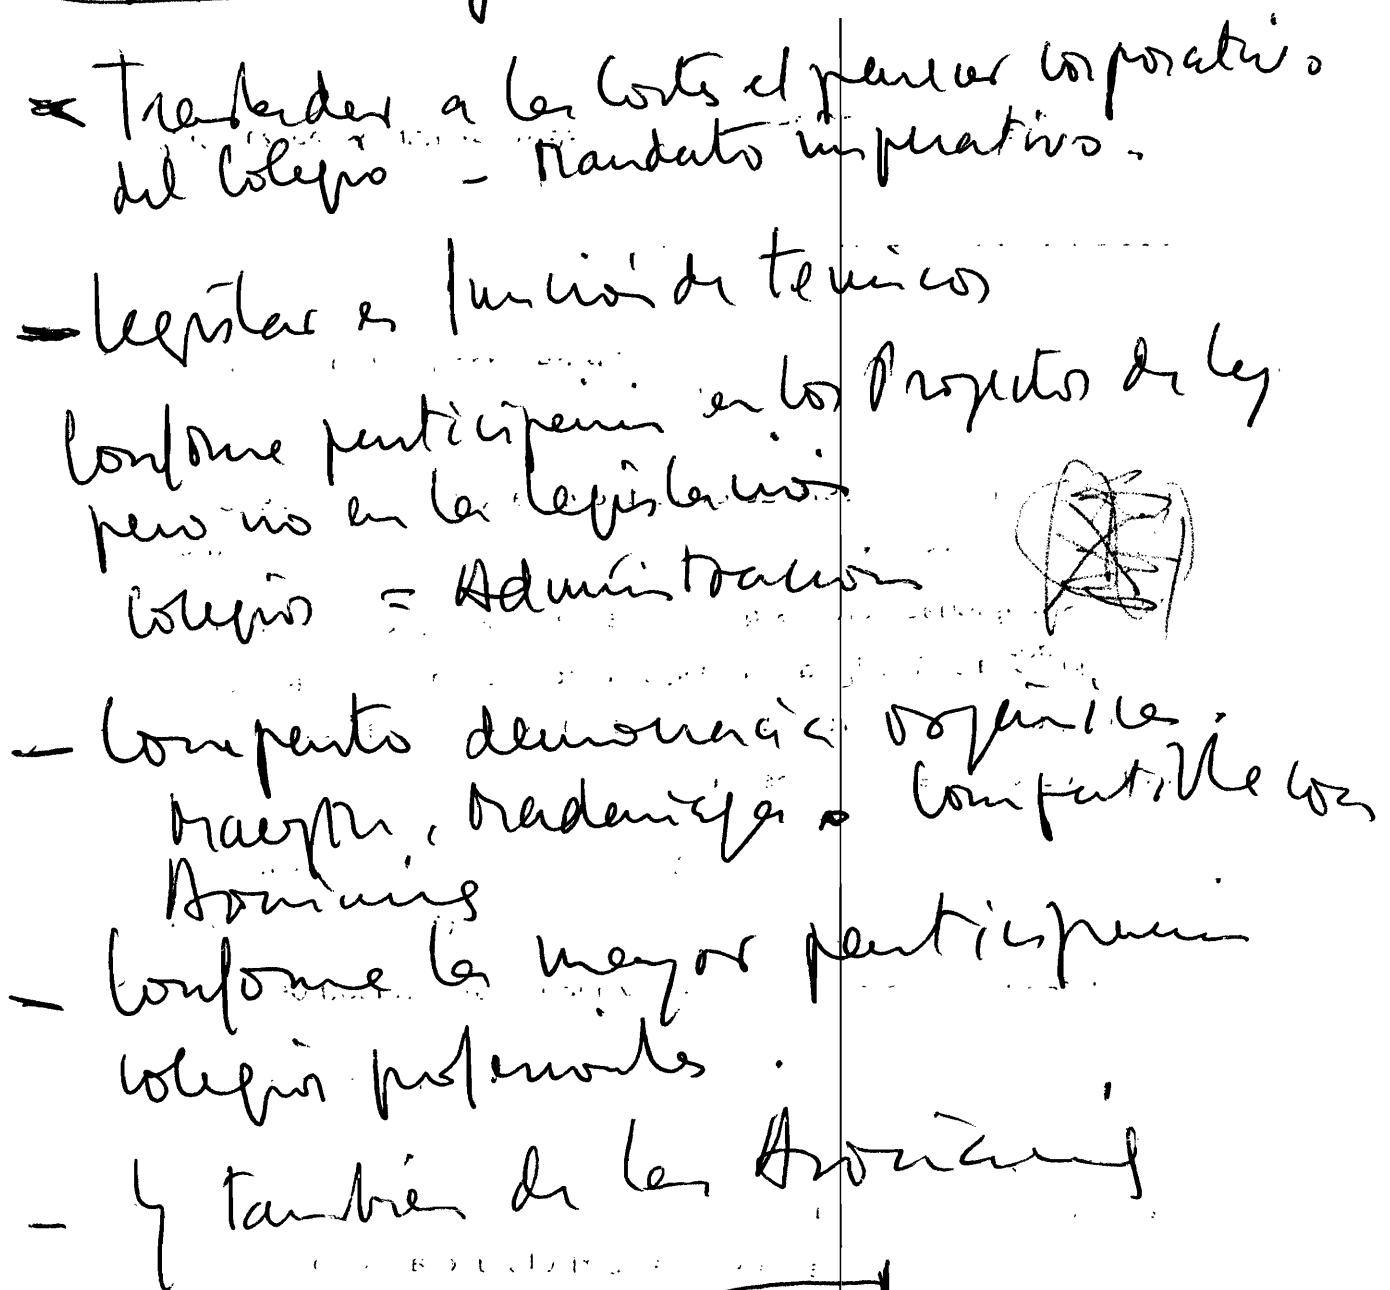 Trasladar a las Cortes el pensar corporativo
del Colegio - Mandato imperativo.
- Legislar es función de técnicos
Conforme participación en los Proyectos de ley
pero no en la legislación
Colegios = Administración
- Comparto democracia orgánica.
Maeztu, Madariaga. Compatible con
Asociaciones
- Conforme la mayor participación
colegios profesionales.
- Y también de las Asociaciones